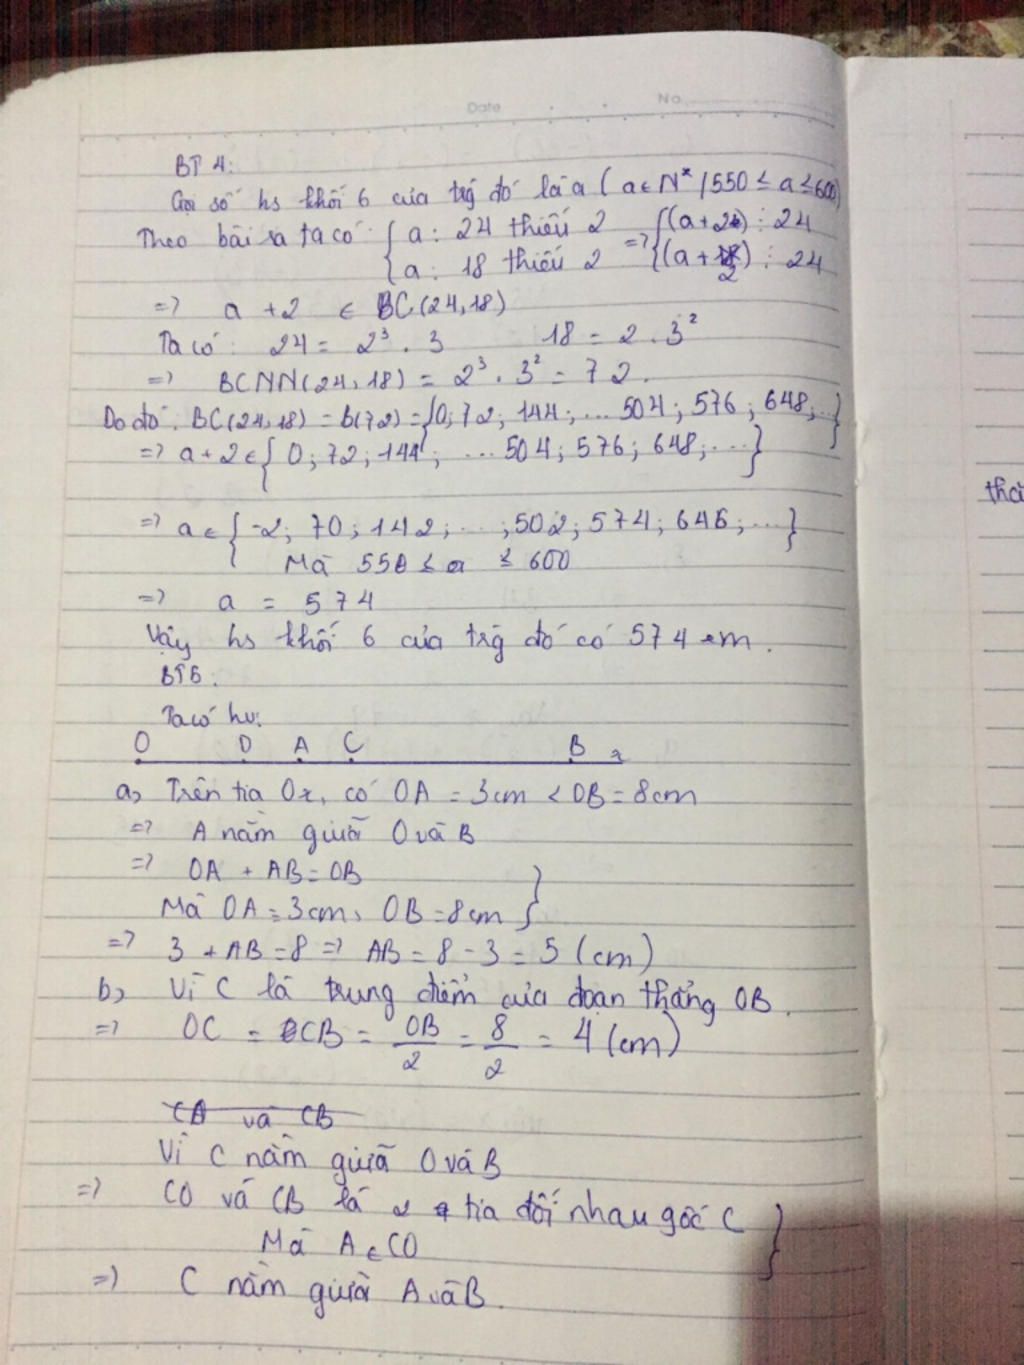 Date No
BT 4:
Gọi số hs khối 6 của trg đó là a ( a ∈ N* / 550 ≤ a ≤ 600)
Theo bài ra ta có { a : 24 thiếu 2 => { (a+2) ⋮ 24
{ a : 18 thiếu 2 { (a+2) ⋮ 24
=> a + 2 ∈ BC(24,18)
Ta có : 24 = 2³ . 3 18 = 2 . 3²
=> BCNN(24,18) = 2³ . 3² = 72.
Do đó : BC(24,18) = B(72) = {0; 72; 144; ... 504; 576; 648; ..}
=> a + 2 ∈ { 0; 72; 144; ... 504; 576; 648; ... }
thời
=> a ∈ { -2; 70; 142; ...; 502; 574; 646; ... }
Mà 550 ≤ a ≤ 600
=> a = 574
Vậy hs khối 6 của trg đó có 574 em.
BT6:
Ta có hv:
O D A C B x
a, Trên tia Ox, có OA = 3cm < OB = 8cm
=> A nằm giữa O và B
=> OA + AB = OB }
Mà OA = 3cm, OB = 8cm }
=> 3 + AB = 8 => AB = 8 - 3 = 5 (cm)
b, Vì C là trung điểm của đoạn thẳng OB.
=> OC = CB = OB/2 = 8/2 = 4 (cm)
CA và CB
Vì C nằm giữa O và B
=> CO và CB là 2 tia đối nhau gốc C }
Mà A ∈ CO
=> C nằm giữa A và B.